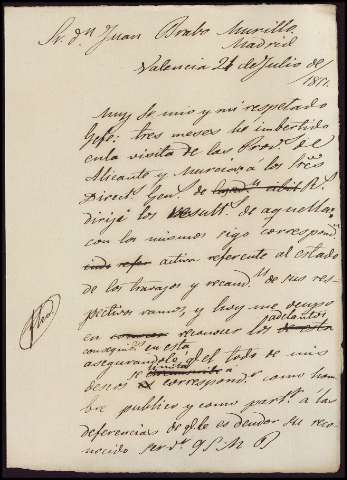 Sr. dn Juan Brabo Murillo.
Madrid
Valencia 21 de Julio de
1851.
Muy Sr mio y mi respetado
Gefe: tres meses he imbertido
en la visita de las Provs. de
Alicante y Murcia; á los Sres
Directs. Gens. de
dirijí los result.s de aquella:
con los mismos sigo correspond.a
activa referente al estado
de los trabajos y recaud.n de sus res-
pectivos ramos, y hoy me ocupo
en reconocer los adelantos
conseguidos en esta
asegurandole q.e el todo de mis
deseos se limita á corresponder como hom-
bre publico y como part.r á las
deferencias de q.e le es deudor su reco-
nocido ser.r q S M B